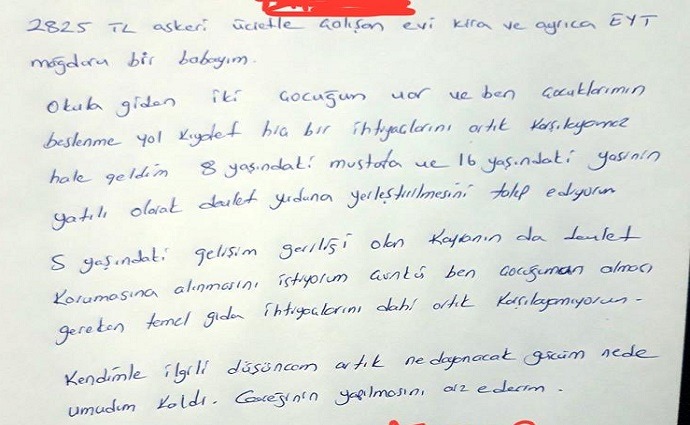 2825 TL askeri ücretle çalışan evi kira ve ayrıca EYT
mağduru bir babayım.
Okula giden iki çocuğum var ve ben çocuklarımın
beslenme yol kıyafet hiç bir ihtiyaçlarını artık karşılayamaz
hale geldim 8 yaşındaki mustafa ve 16 yaşındaki yasinin
yatılı olarak devlet yurduna yerleştirilmesini talep ediyorum
5 yaşındaki gelişim geriliği olan Kayranın da devlet
korumasına alınmasını istiyorum çünkü ben çocuğumun alması
gereken temel gıda ihtiyaçlarını dahi artık karşılayamıyorum.
Kendimle ilgili düşüncem artık ne dayanacak gücüm nede
umudum kaldı. Gereğinin yapılmasını arz ederim.